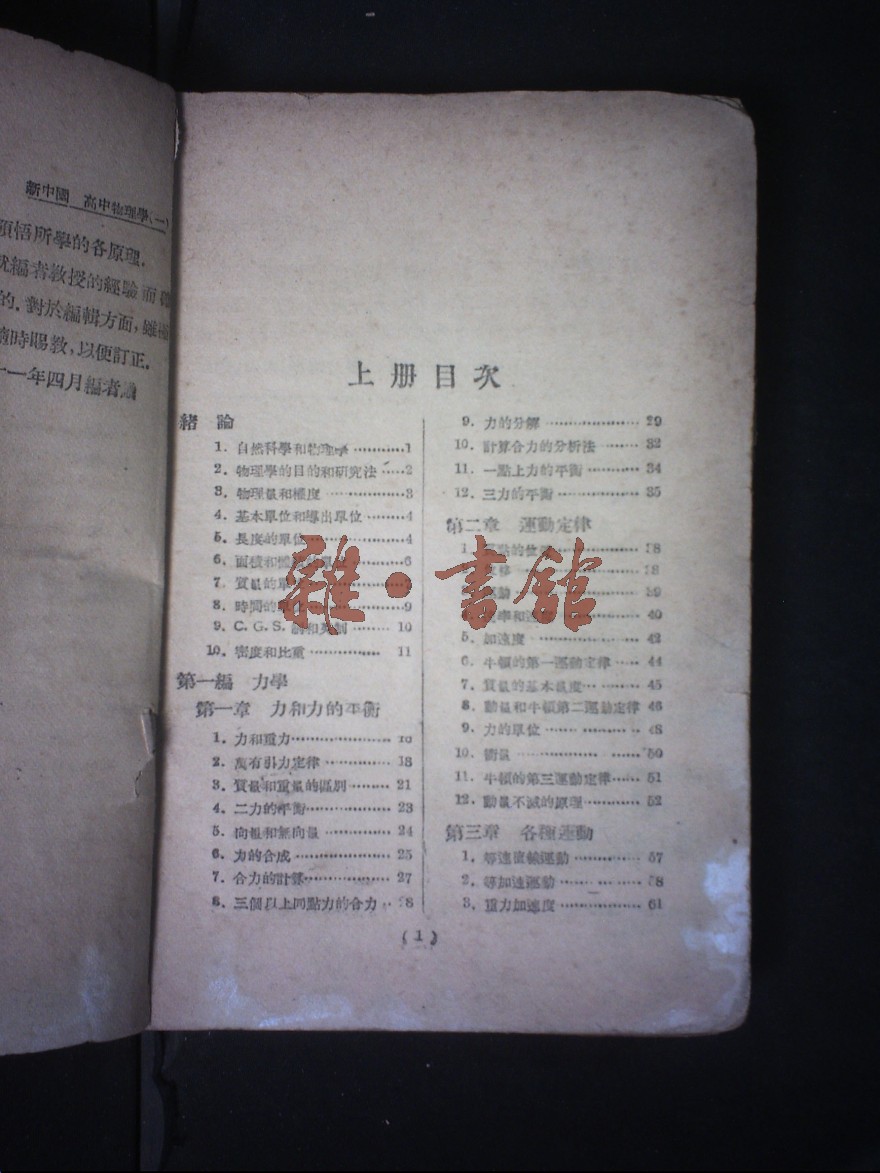 新中國 高中物理學(一)
領悟所學的各原理.
就編者教授的經驗而
的.對於編輯方面,雖
隨時賜教,以便訂正.
十一年四月編者識
上册目次
緒論
1. 自然科學和物理學 1
2. 物理學的目的和研究法 2
3. 物理量和 3
4. 基本單位和導出單位 4
5. 長度的單位 4
6. 面積和 6
7. 質量的單
8. 時間的單位 9
9. C.G.S. 制和英制 10
10. 密度和比重 11
第一編 力學
第一章 力和力的平衡
1. 力和重力
2. 萬有引力定律 18
3. 質量和重量的區別 21
4. 二力的平衡 23
5. 向量和無向量 24
6. 力的合成 25
7. 合力的計算 27
8. 三個以上同點力的合力 28
9. 力的分解 29
10. 計算合力的分析法 32
11. 一點上力的平衡 34
12. 三力的平衡 35
第二章 運動定律
1. 點的位 38
移 38
39
率和速 40
5. 加速度 42
6. 牛頓的第一運動定律 44
7. 質量的基本量度 45
8. 動量和牛頓第二運動定律 46
9. 力的單位 48
10. 衝量 50
11. 牛頓的第三運動定律 51
12. 動量不滅的原理 52
第三章 各種運動
1. 等速直線運動 57
2. 等加速運動 58
3. 重力加速度 61
(1)
雜·書館